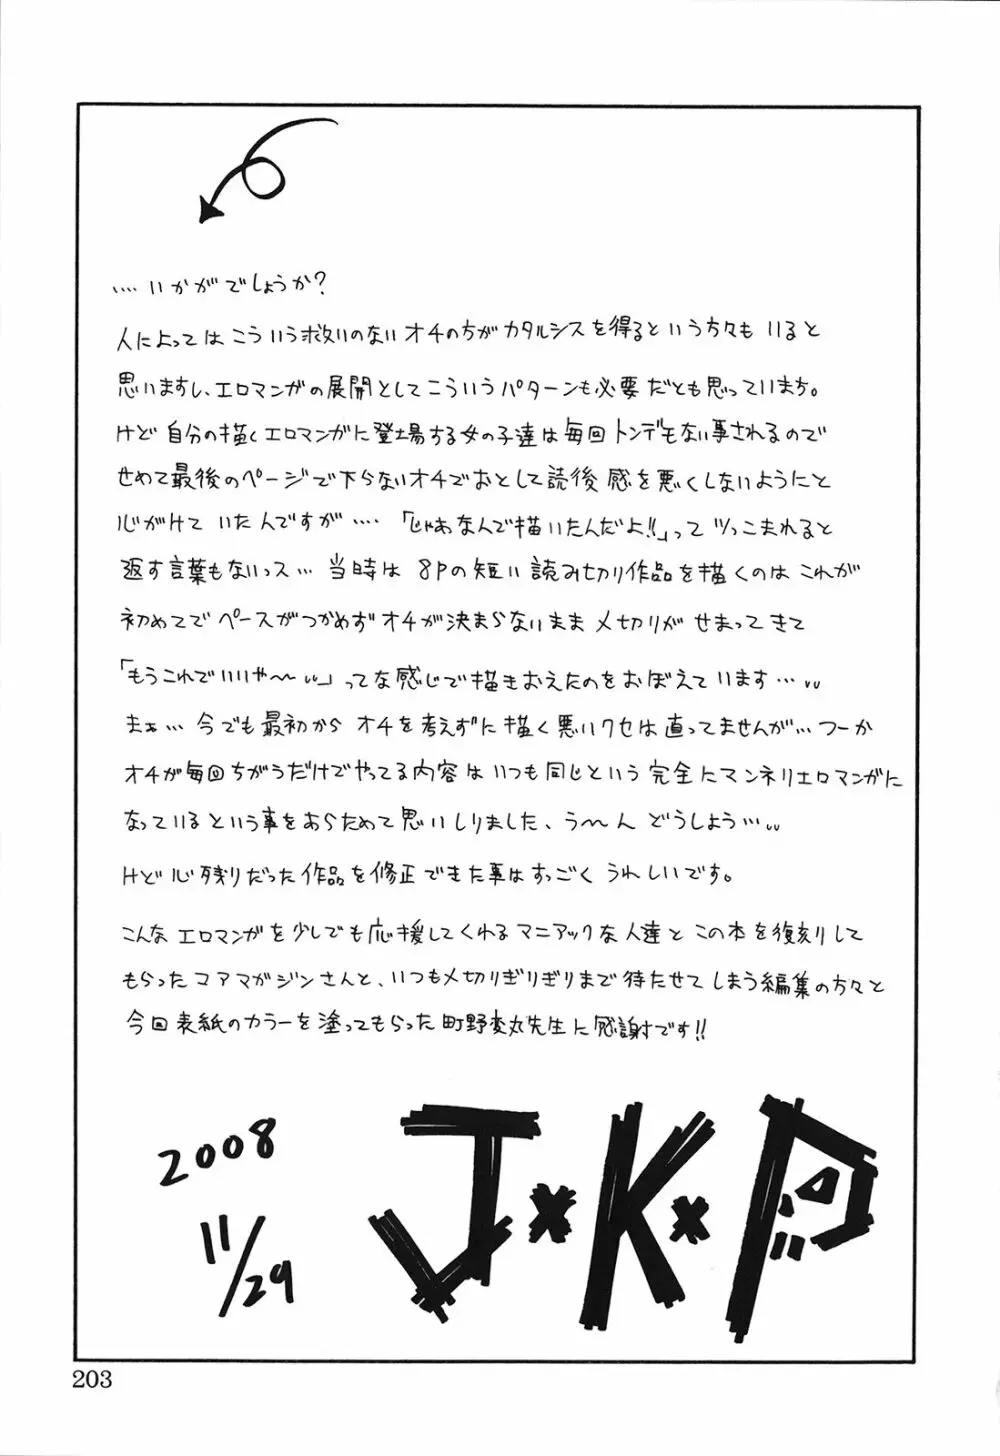 ....いかがでしょうか?
人によってはこういう救いのないオチの方がカタルシスを得るという方々もいると
思いますし、エロマンガの展開としてこういうパターンも必要だとも思っています。
けど自分の描くエロマンガに登場する女の子達は毎回トンデもない事されるので
せめて最後のページで下らないオチでおとして読後感を悪くしないようにと
心がけていたんですが....「じゃあなんで描いたんだよ!!」ってツっこまれると
返す言葉もないっス...当時は8Pの短い読み切り作品を描くのはこれが
初めてでペースがつかめずオチが決まらないままメ切りがせまってきて
「もうこれでいいや〜〃」ってな感じで描きおえたのをおぼえています...〃
まぁ...今でも最初からオチを考えずに描く悪いクセは直ってませんが...つーか
オチが毎回ちがうだけでやってる内容はいつも同じという完全にマンネリエロマンガに
なっているという事をあらためて思いしりました、う〜んどうしよう...〃
けど心残りだった作品を修正できた事はすっごくうれしいです。
こんなエロマンガを少しでも応援してくれるマニアックな人達とこの本を復刻して
もらったコアマガジンさんと、いつもメ切りぎりぎりまで待たせてしまう編集の方々と
今回表紙のカラーを塗ってもらった町野変丸先生に感謝です!!
2008
11/29
J×K×P
203